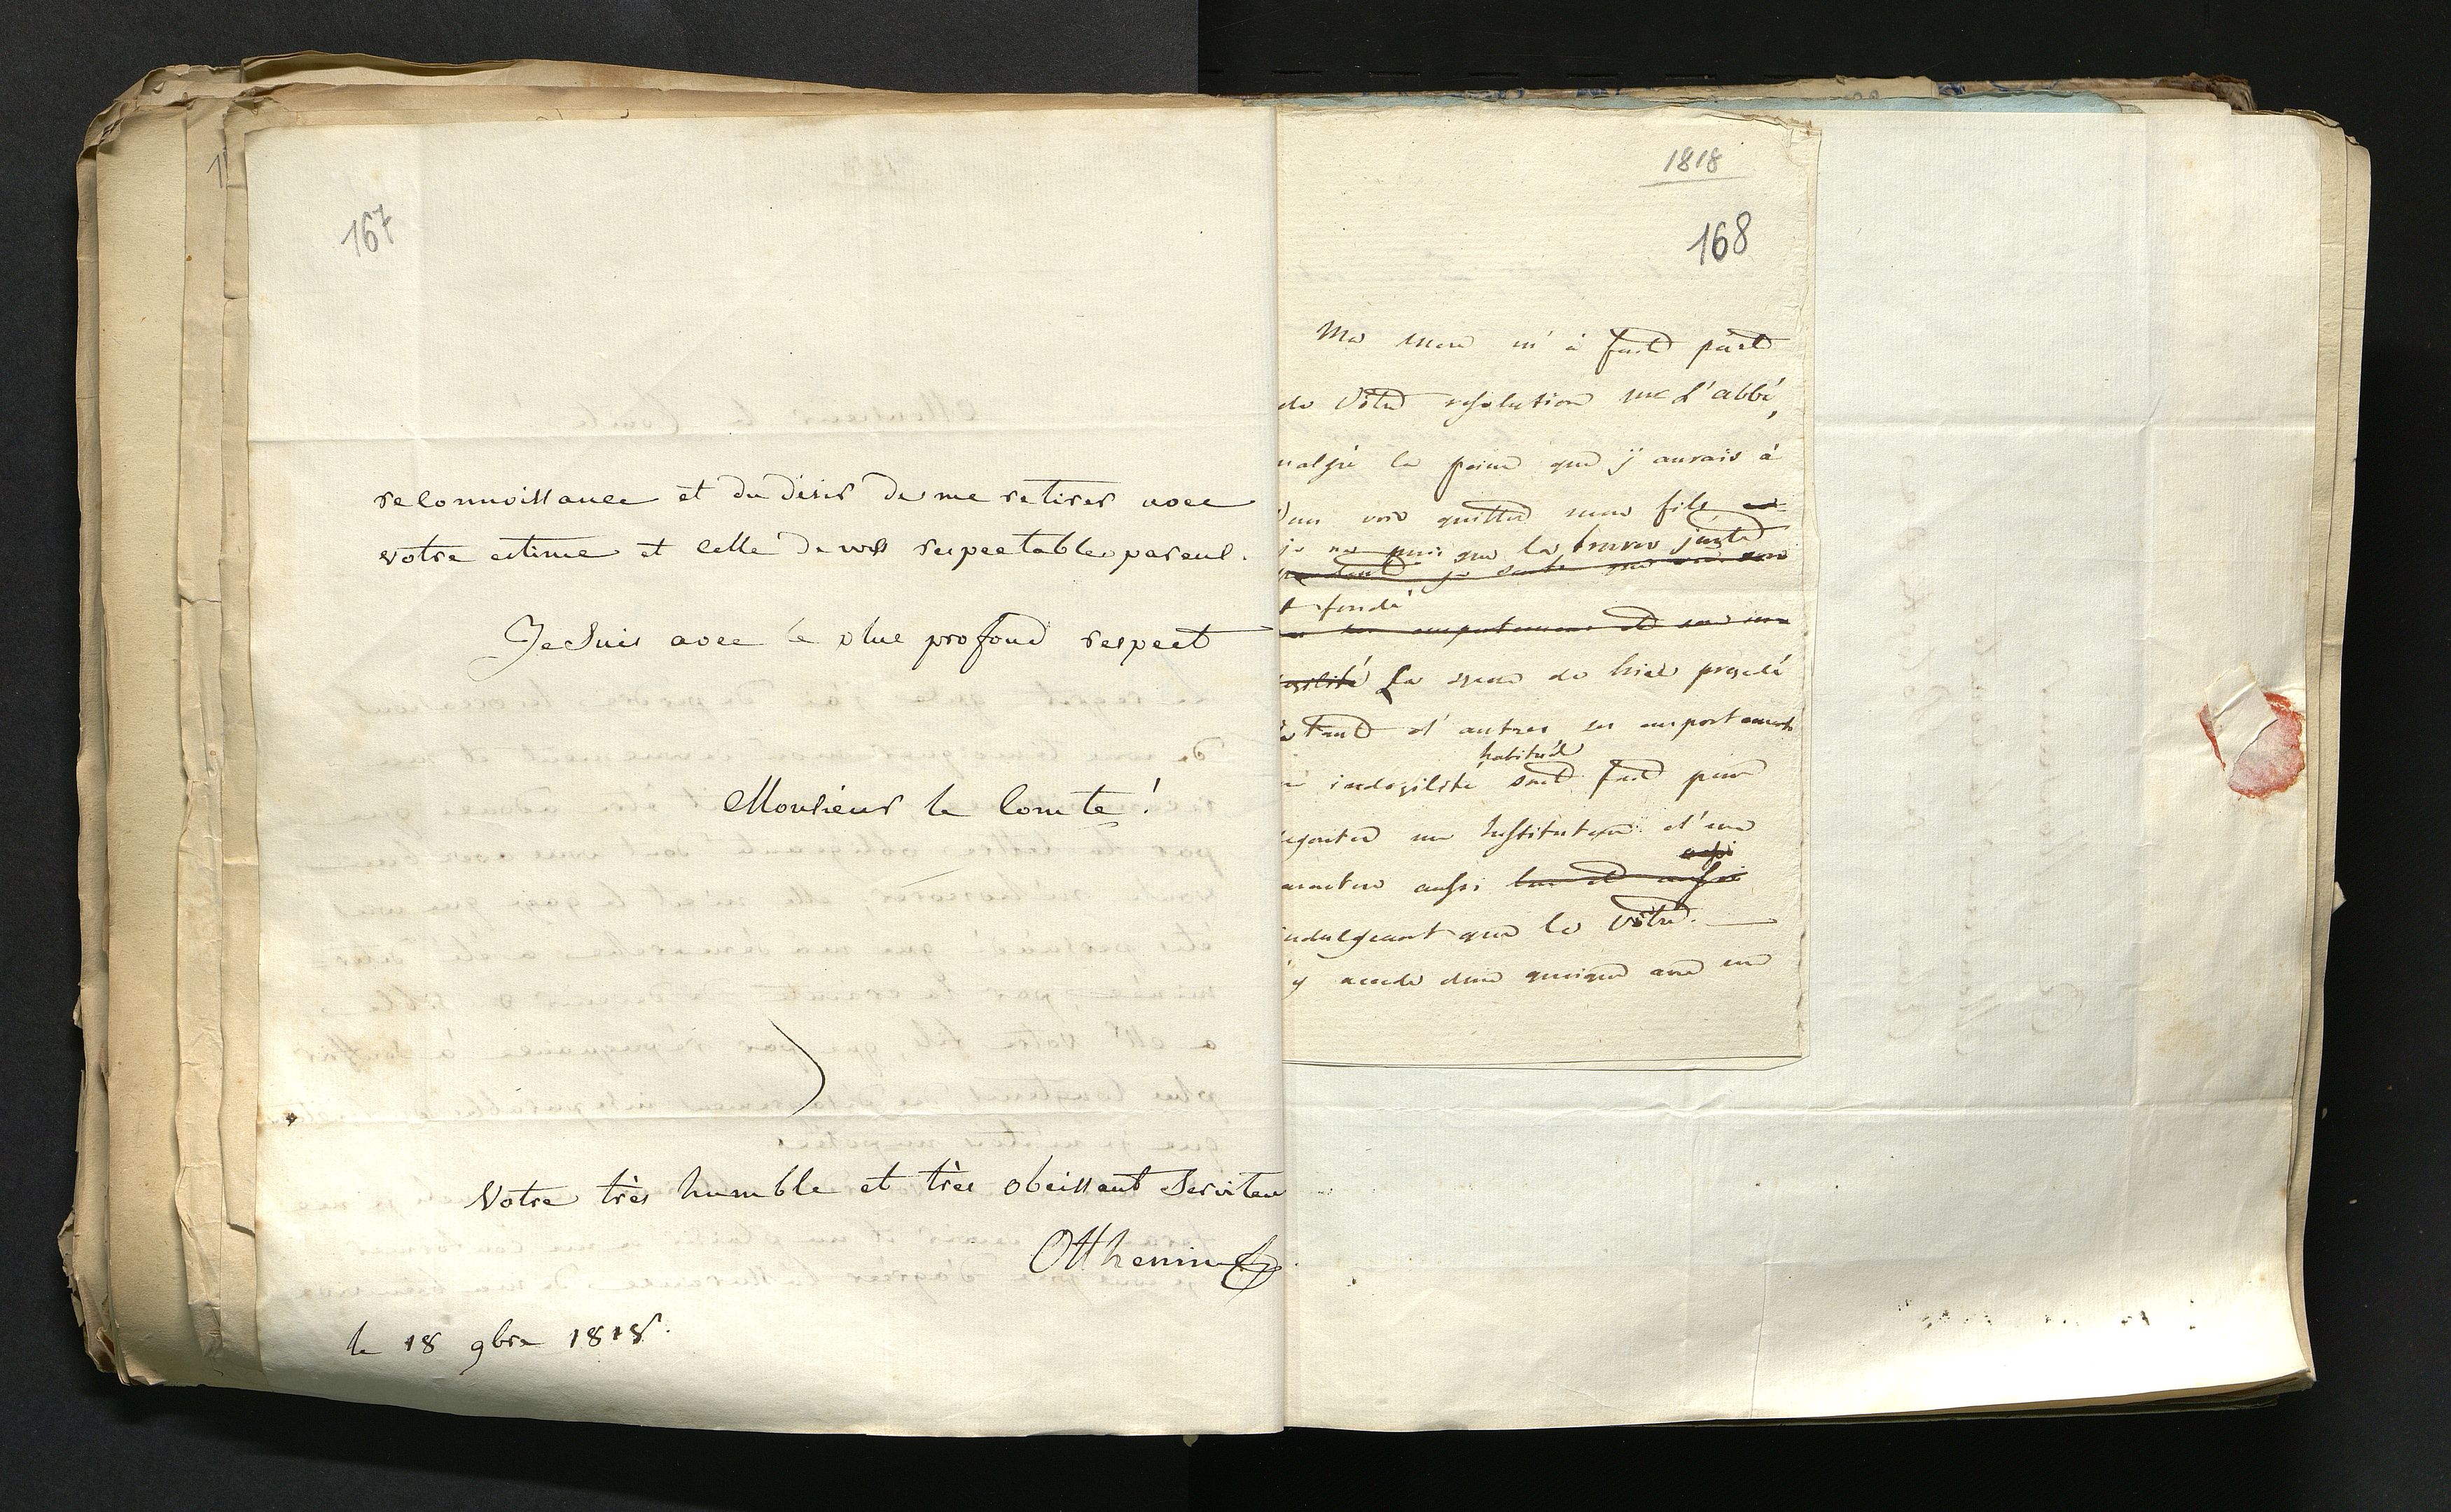 167
reconnoissance et du désir de me retirer avec
votre estime et celle de vos respectables parens.
Je suis avec le plus profond respect
Monsieur le Comte!
Votre très humble et très obeissant Serviteu
Otthenin
le 18 9bre 1818.
1818
168
Ma mere m'à fait part
de Votre resolution mr L'abbé,
malgré la peine que j'aurais à
Vous voir quitter mon fils
je ne puis que la trouver juste
t fondé
La scene de hier
tant d'autres ses emportements
habituel
indozilité sont fait pour
degouter un Instituteur d'un
caractere aussi
indulgeant que le Vôtre.
j'y accede donc quoique avec une